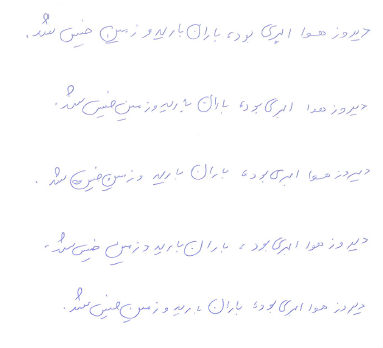 دیروز هوا ابری بود، باران بارید و زمین خیس شد.
دیروز هوا ابری بود، باران بارید و زمین خیس شد.
دیروز هوا ابری بود، باران بارید و زمین خیس شد.
دیروز هوا ابری بود، باران بارید و زمین خیس شد.
دیروز هوا ابری بود، باران بارید و زمین خیس شد.